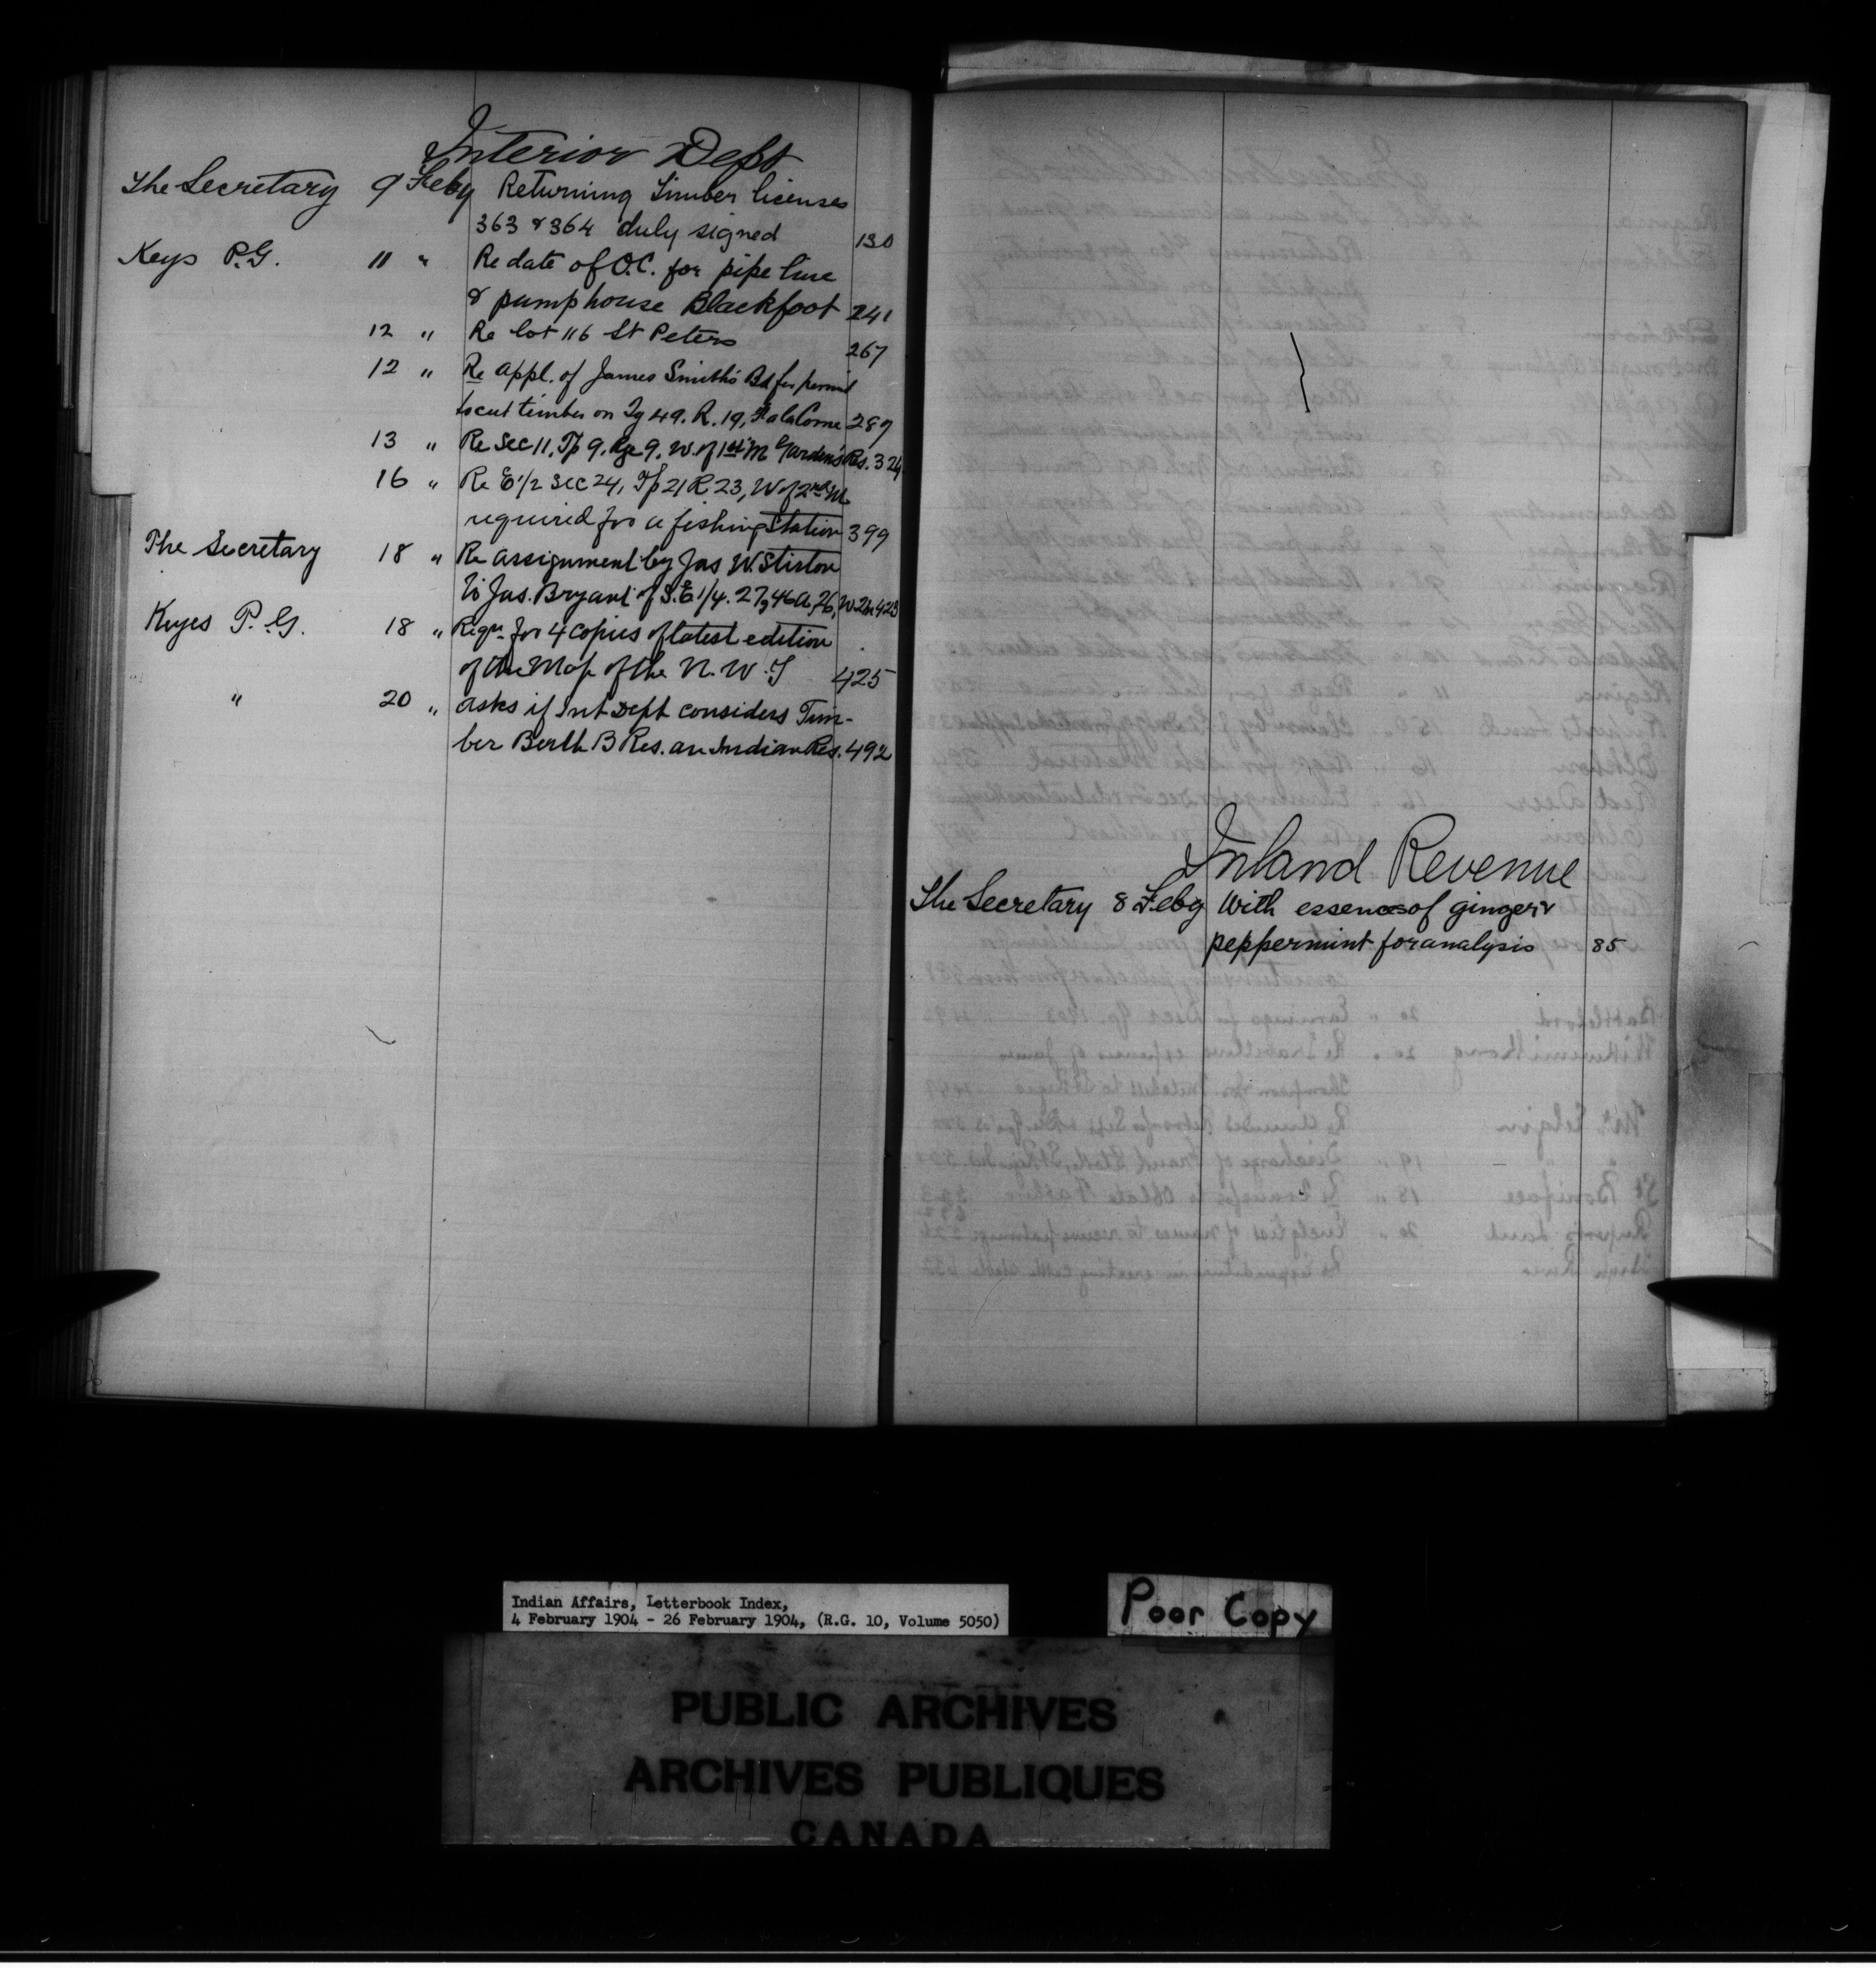 Interior Dept
The Secretary 9 Feby Returning Timber licenses
363 & 364 duly signed 130
Keys P.G. 11 " Re date of O.C. for pipe line
& pumphouse Blackfoot 241
12 " Re lot 116 St Peters 267
12 " Re appl. of James Smith's Bd for permit
to cut timber on Tp 49. R. 19, Fort a la Corne 289
13 " Re Sec 11, Tp 9. Rge 9. W. of 1st M Gardens Res. 324
16 " Re E 1/2 Sec 24, Tp 21 R 23, W of 2nd M
required for a fishing Station 399
The Secretary 18 " Re assignment by Jas W. Stirton
to Jas. Bryant of S.E 1/4. 27, 46A, 26, W. 2m 423
Keyes P. G. 18 " Reqn for 4 copies of latest edition
of the Map of the N. W. T 425
" 20 " Asks if Int Dept considers Tim-
ber Berth B Res. an Indian Res. 492
Inland Revenue
The Secretary 8 Feby With essences of ginger &
peppermint for analysis 85
Indian Affairs, Letterbook Index,
4 February 1904 - 26 February 1904, (R.G. 10, Volume 5050)
Poor Copy
PUBLIC ARCHIVES
ARCHIVES PUBLIQUES
CANADA